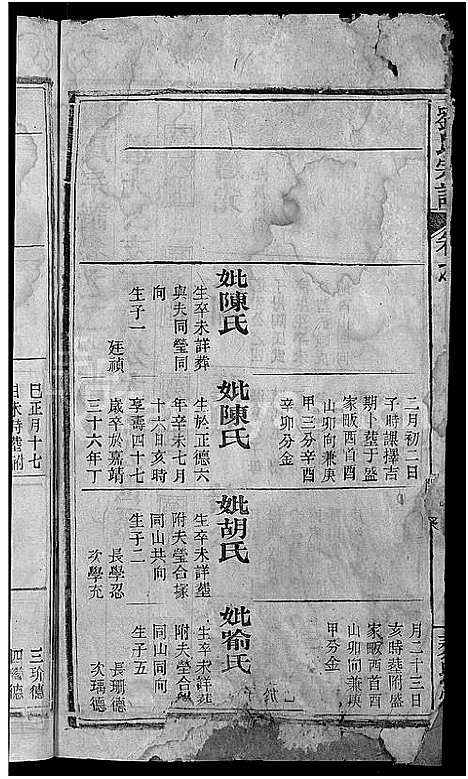 劉氏宗譜
二月初二日
子時課擇吉
期卜塟于盛
家畈酉首酉
山卯向兼庚
甲三分辛酉
辛卯分金
妣陳氏
生卒未詳葬
與夫同瑩同
向
生子一
廷禎
妣陳氏
生於正德六
年辛未七月
十六日亥時
享壽四十七
歲卒於嘉靖
三十六年丁
巳正月十七
月二十三日
亥時塟附盛
家畈酉首酉
山卯向兼庚
甲分金
妣胡氏
生卒未詳塟
附夫瑩合
同山共向
生子二
長學忍
次學充
妣喻氏
生卒未詳
附夫瑩
同山同向
生子五
長珊德
次瑀德
三玠德